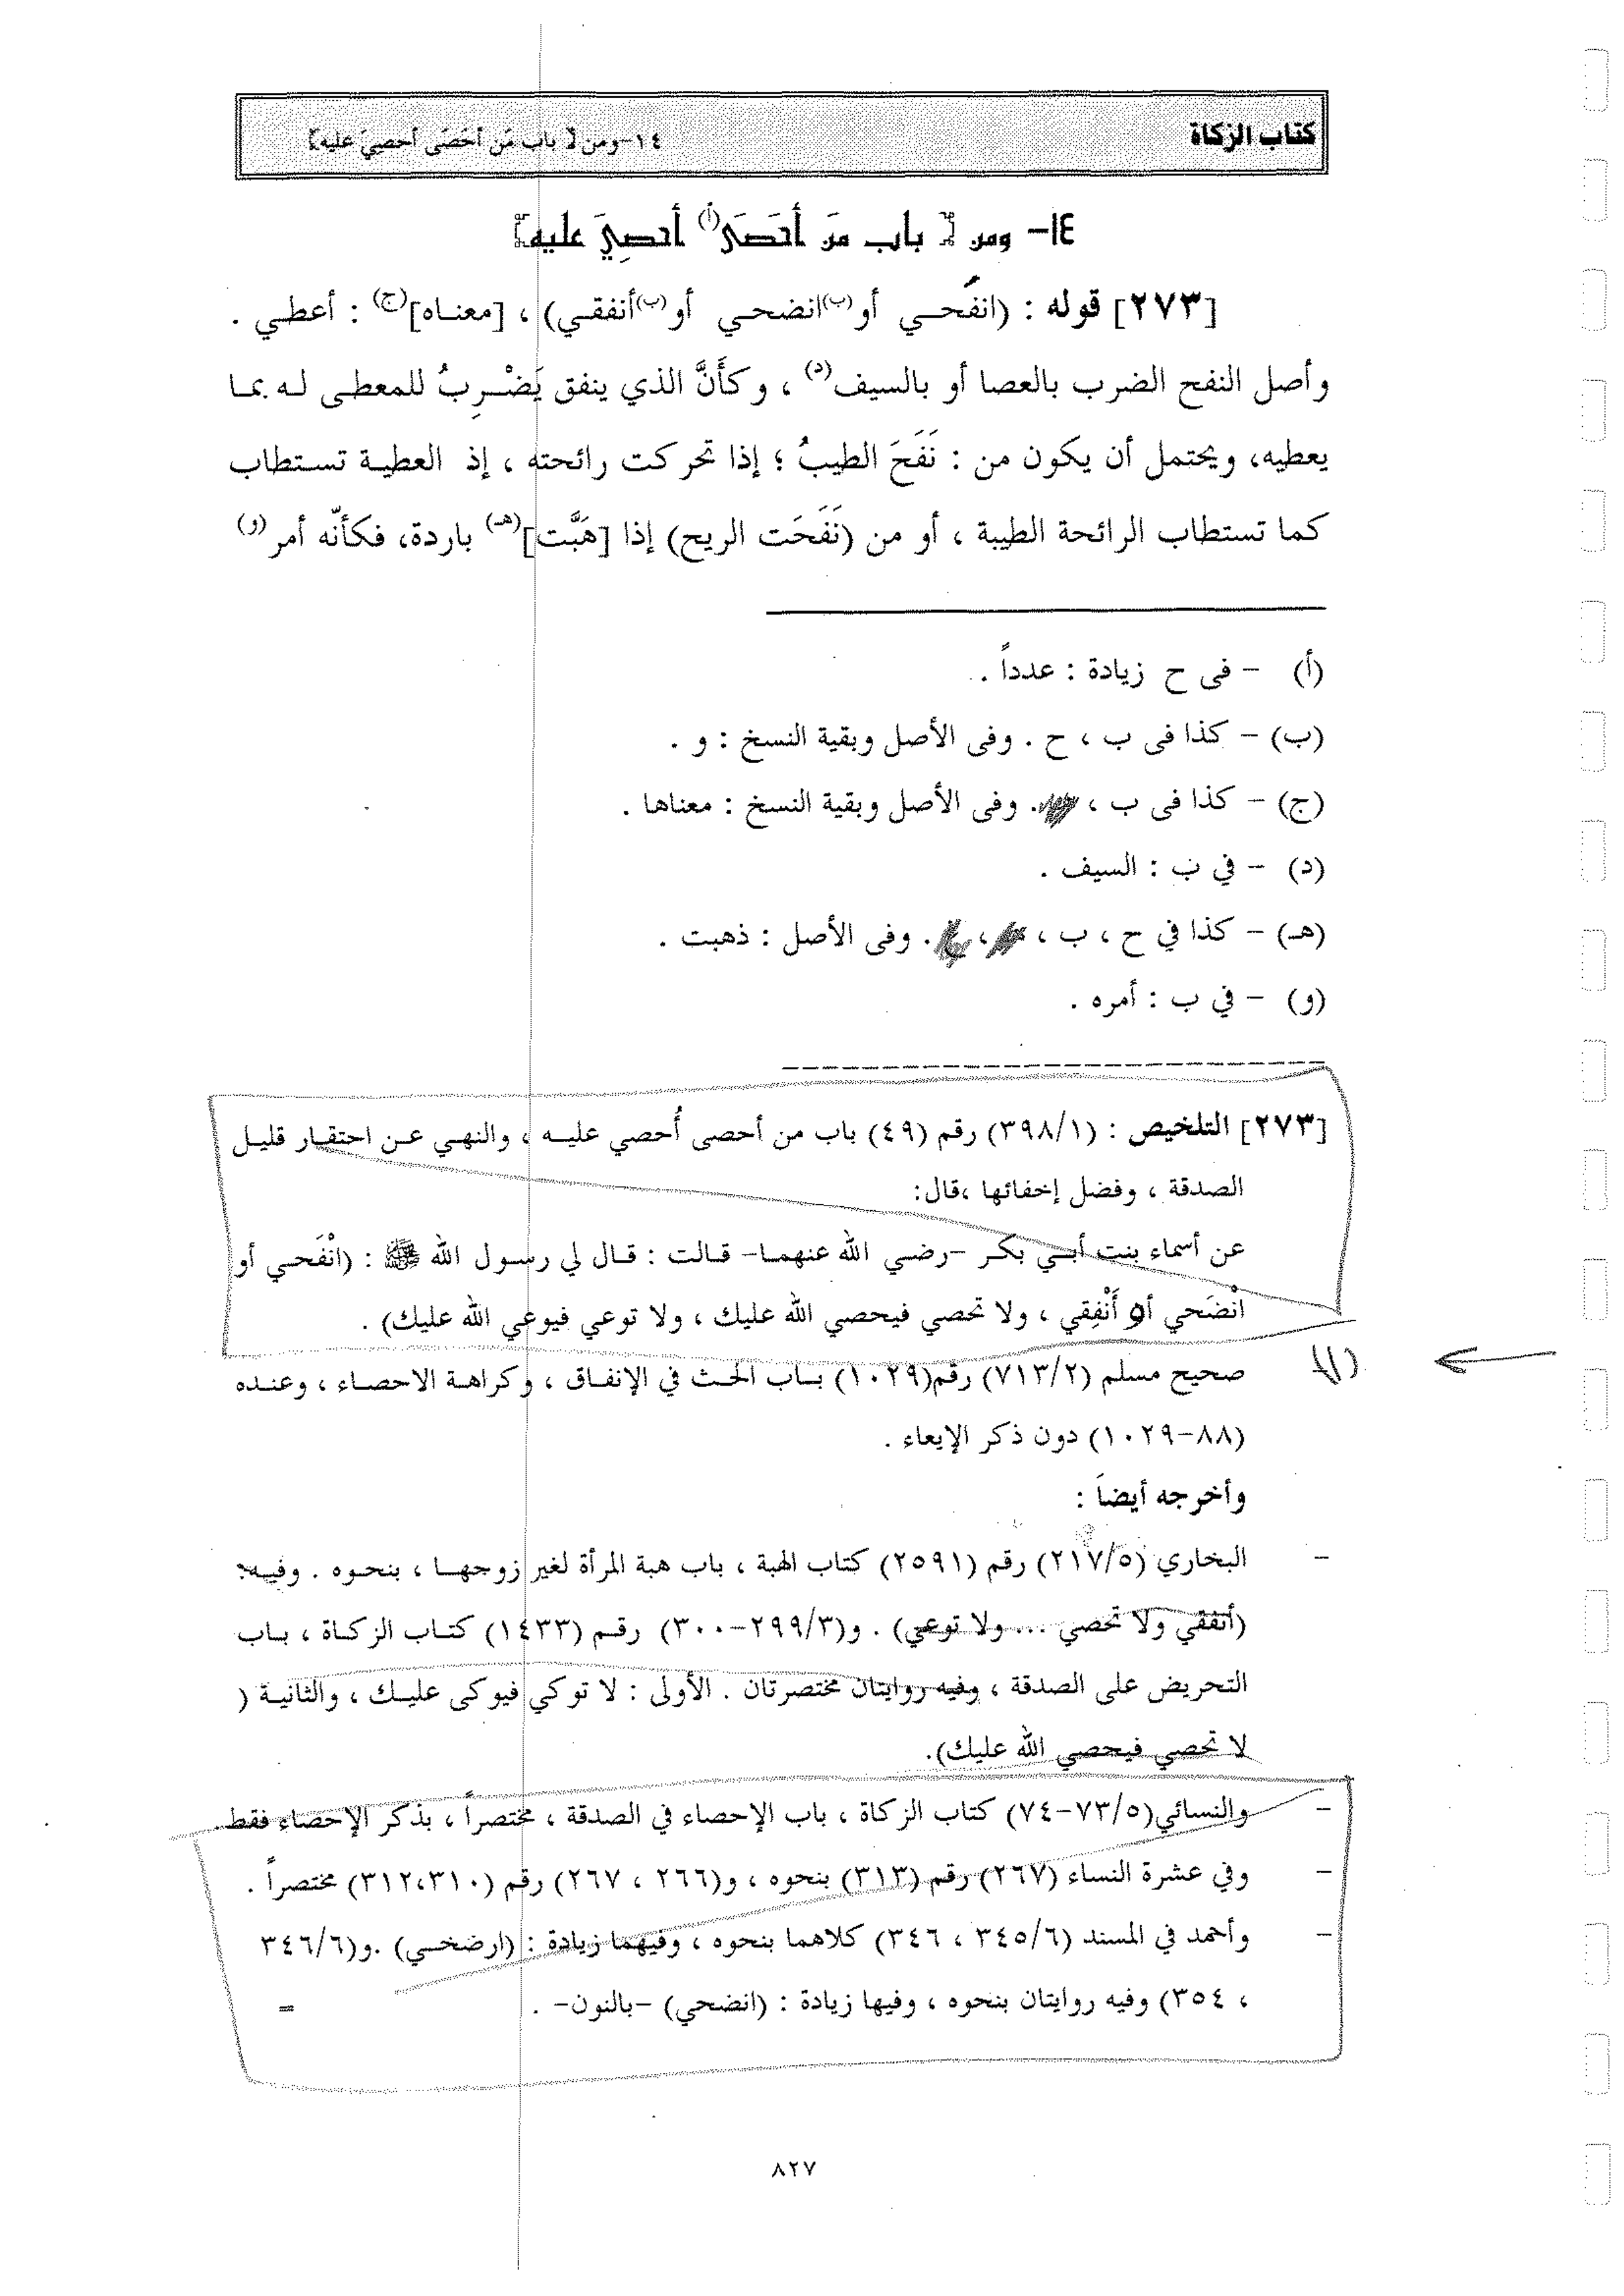 كتاب الزكاة
١٤-ومن [ باب مَن أحَصَى أحصِيَ عليه]
١٤- ومن [ باب مَن أحَصَى(أ) أحصِيَ عليه]
[٢٧٣] قوله : (انفَحي أو(ب)انضحي أو(ب)أنفقي) ، [معناه](ج) : أعطي .
وأصل النفح الضرب بالعصا أو بالسيف(د) ، وكأَنَّ الذي ينفق يَضْرِبُ للمعطى له بما
يعطيه، ويحتمل أن يكون من : نَفَحَ الطيبُ ؛ إذا تحركت رائحته ، إذ العطية تستطاب
كما تستطاب الرائحة الطيبة ، أو من (نَفَحَت الريح) إذا [هَبَّت](هـ) باردة، فكأنّه أمر(و)
(أ) - فى ح زيادة : عدداً .
(ب) - كذا فى ب ، ح . وفى الأصل وبقية النسخ : و .
(ج) - كذا فى ب ، . وفى الأصل وبقية النسخ : معناها .
(د) - في ب : السيف .
(هـ) - كذا في ح ، ب ، ، . وفى الأصل : ذهبت .
(و) - في ب : أمره .
[٢٧٣] التلخيص : (٣٩٨/١) رقم (٤٩) باب من أحصى أُحصي عليه ، والنهي عن احتقار قليل
الصدقة ، وفضل إخفائها ،قال:
عن أسماء بنت أبي بكر -رضي الله عنهما- قالت : قال لي رسول الله ﷺ : (انْفَحي أو
انْضَحي أو أَنْفِقي ، ولا تحصي فيحصي الله عليك ، ولا توعي فيوعي الله عليك) .
صحيح مسلم (٧١٣/٢) رقم(١٠٢٩) باب الحث في الإنفاق ، وكراهة الاحصاء ، وعنده
(٨٨-١٠٢٩) دون ذكر الإيعاء .
وأخرجه أيضاً :
- البخاري (٢١٧/٥) رقم (٢٥٩١) كتاب الهبة ، باب هبة المرأة لغير زوجها ، بنحوه . وفيه:
(أنفقي ولا تحصي ... ولا توعي) . و(٢٩٩/٣-٣٠٠) رقم (١٤٣٣) كتاب الزكاة ، باب
التحريض على الصدقة ، وفيه روايتان مختصرتان . الأولى : لا توكي فيوكى عليك ، والثانية (
لا تحصي فيحصي الله عليك).
- والنسائي(٧٣/٥-٧٤) كتاب الزكاة ، باب الإحصاء في الصدقة ، مختصراً ، بذكر الإحصاء فقط.
- وفي عشرة النساء (٢٦٧) رقم (٣١٣) بنحوه ، و(٢٦٦ ، ٢٦٧) رقم (٣١٢،٣١٠) مختصراً .
- وأحمد في المسند (٣٤٥/٦ ، ٣٤٦) كلاهما بنحوه ، وفيهما زيادة : (ارضخي) .و(٣٤٦/٦
، ٣٥٤) وفيه روايتان بنحوه ، وفيها زيادة : (انضحي) -بالنون- .
=
٨٢٧